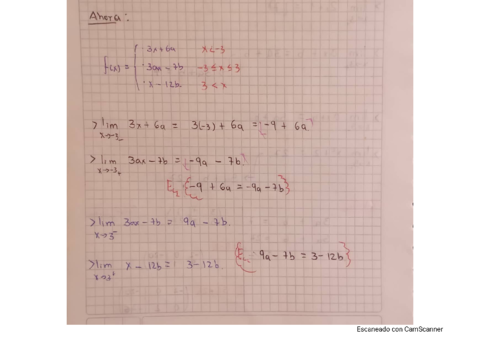 Ahora:
3x+6a x<-3
f(x) = { 3ax-7b -3≤x≤3
x-12b 3<x
> lim 3x+6a = 3(-3)+6a = -9+6a
x→-3-
> lim 3ax-7b = -9a-7b
x→-3+
{-9+6a = -9a-7b}
> lim 3ax-7b = 9a-7b.
x→3-
> lim x-12b = 3-12b. 9a-7b = 3-12b
x→3+
Escaneado con CamScanner